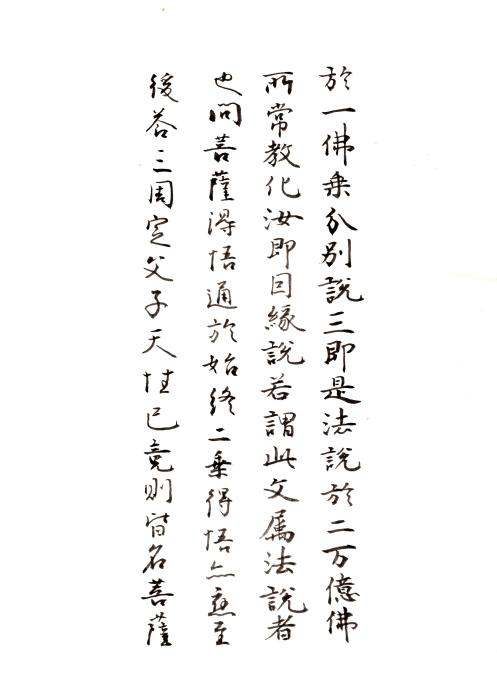 於一佛乗分別説三即是法説於二万億佛
所常教化汝即因縁説若謂此文属法説者
也問菩薩得悟通於始終二乗得悟亦應至
後答三周定父子天性已竟則皆名菩薩